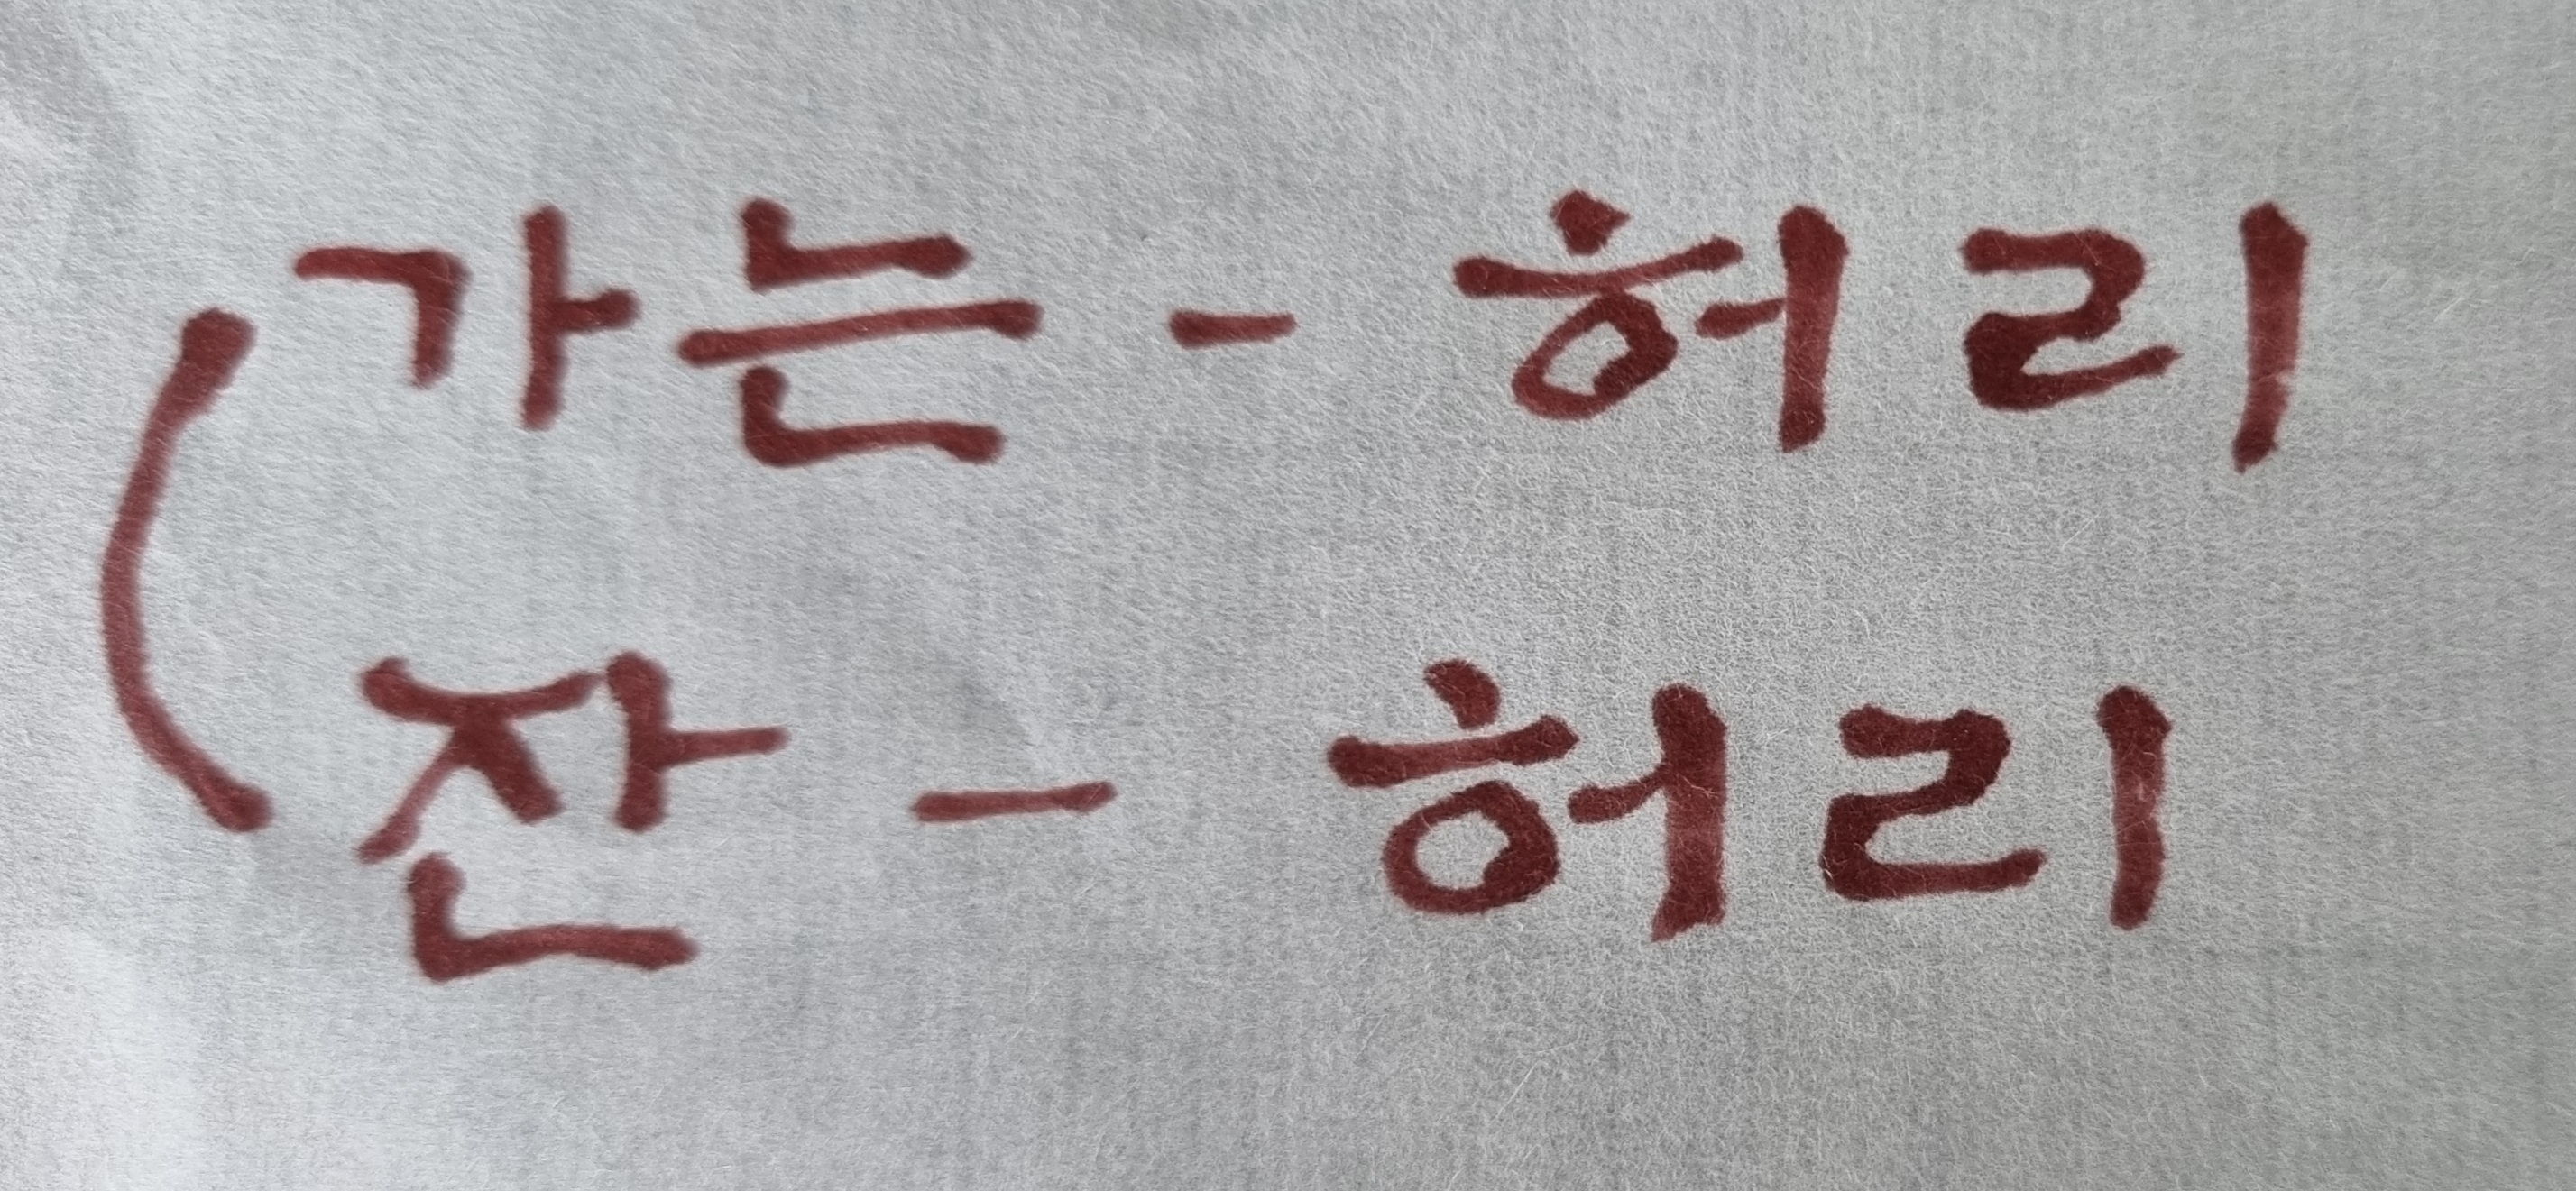 가는 - 허리
잔 - 허리